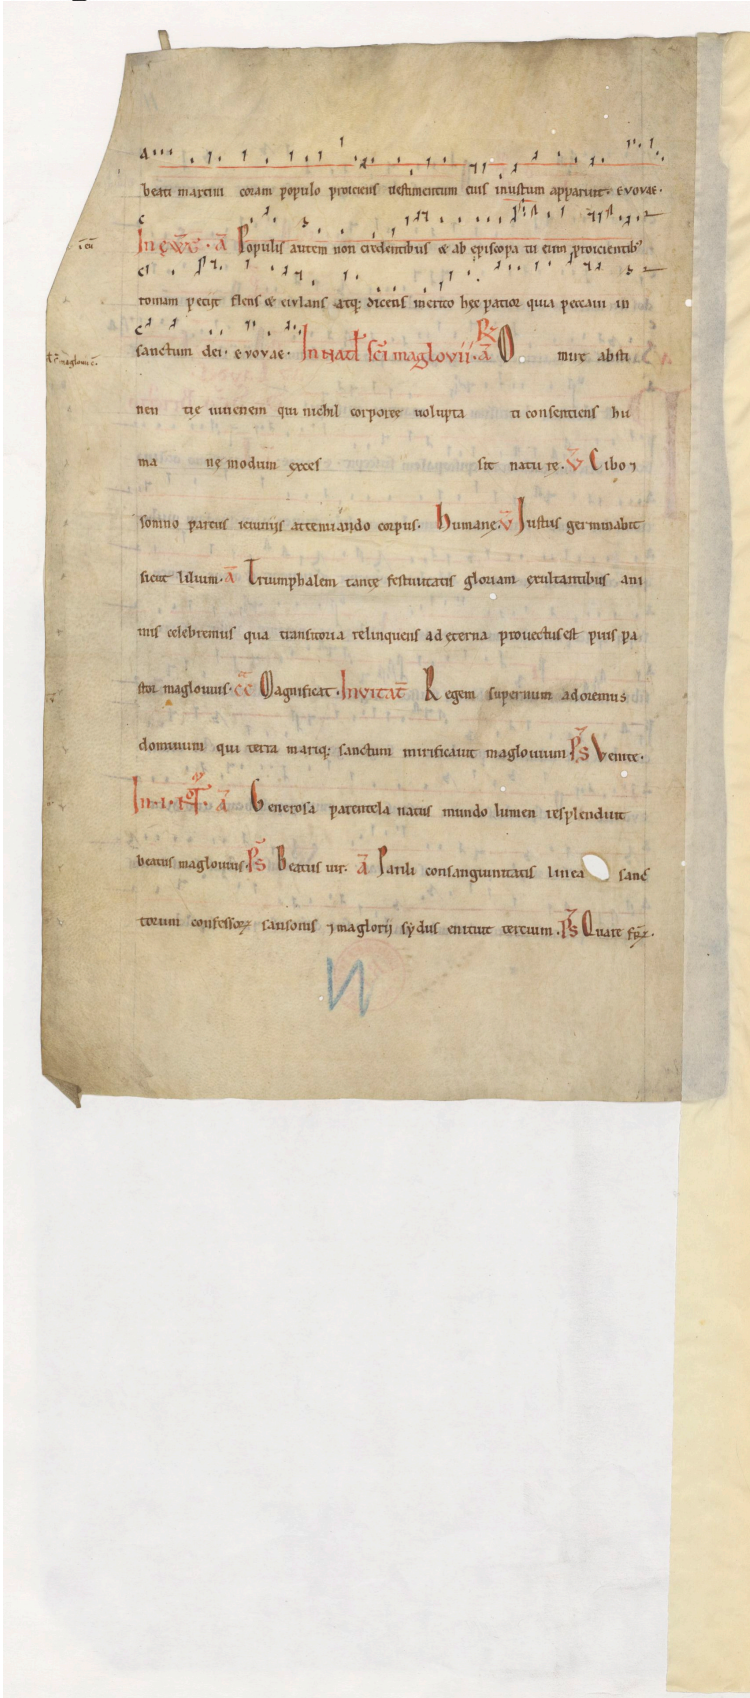 beati martini coram populo proiciens vestimentum eius inustum apparuit. evovae.
In evg̅. a̅ Populis autem non credentibus & ab episcopatu eum proicientib'
romam petiit flens & eiulans atq; dicens merito hec patior quia peccaui in
sanctum dei. evovae. In natł sc̅i maglovii. R̷ a̅ O mire absti
nen tie uirienem qui nichil corporee uolupta ti consentiens hu
ma ne modum exces sit natu re. v̅ Cibo ⁊
somno parcus ieiuniis attenuando corpus. humane. v̅ Iustus germinabit
sicut lilium. a̅ Triumphalem sancte festiuitatis gloriam exultantibus ani
mis celebremus qua transitoria relinquens ad eterna prouectus est pius pa
stor maglouius. Magnificat. Invitat̅ Regem supernum adoremus
dominum qui terra mariq; sanctum mirificauit maglouium ps̅ Venite.
In .i. a̅ Generosa parentela natus mundo lumen resplenduit
beatus maglouius. ps̅ Beatus uir. a̅ Parili consanguinitatis linea sanc
torum confessoꝝ sansonis ⁊ maglorii sydus enituit tercium. ps̅ Quare